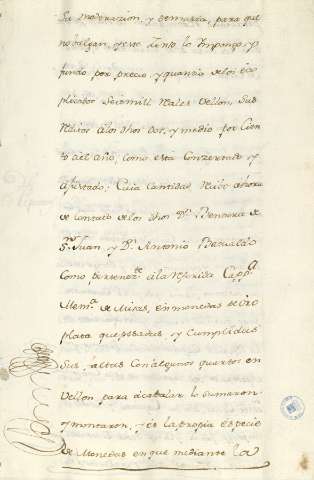 Su moderazion, y demasia, para que
no balgan, y este Zenso lo Impongo, y
fundo por precio, y quantia de los
plicados Seismill Reales Vellon, sus
Reditos a los dhos dos, y medio por Cien
to al año, como esta Conzertado y
Ajustado: Cuia Cantidad Rezibo ahora
de contado de los dhos Dn. Bentura de
Sn. Juan y Dn. Antonio
Como pertenezte. a la Referida Cappa.
Mema. de Misas, en monedas de oro
plata que pesadas y Cumplidas
sus faltas Con algunos quartos en
Vellon para acabalar lo sumaron
y montaron, y es la propia especie
de Monedas en que mediante la